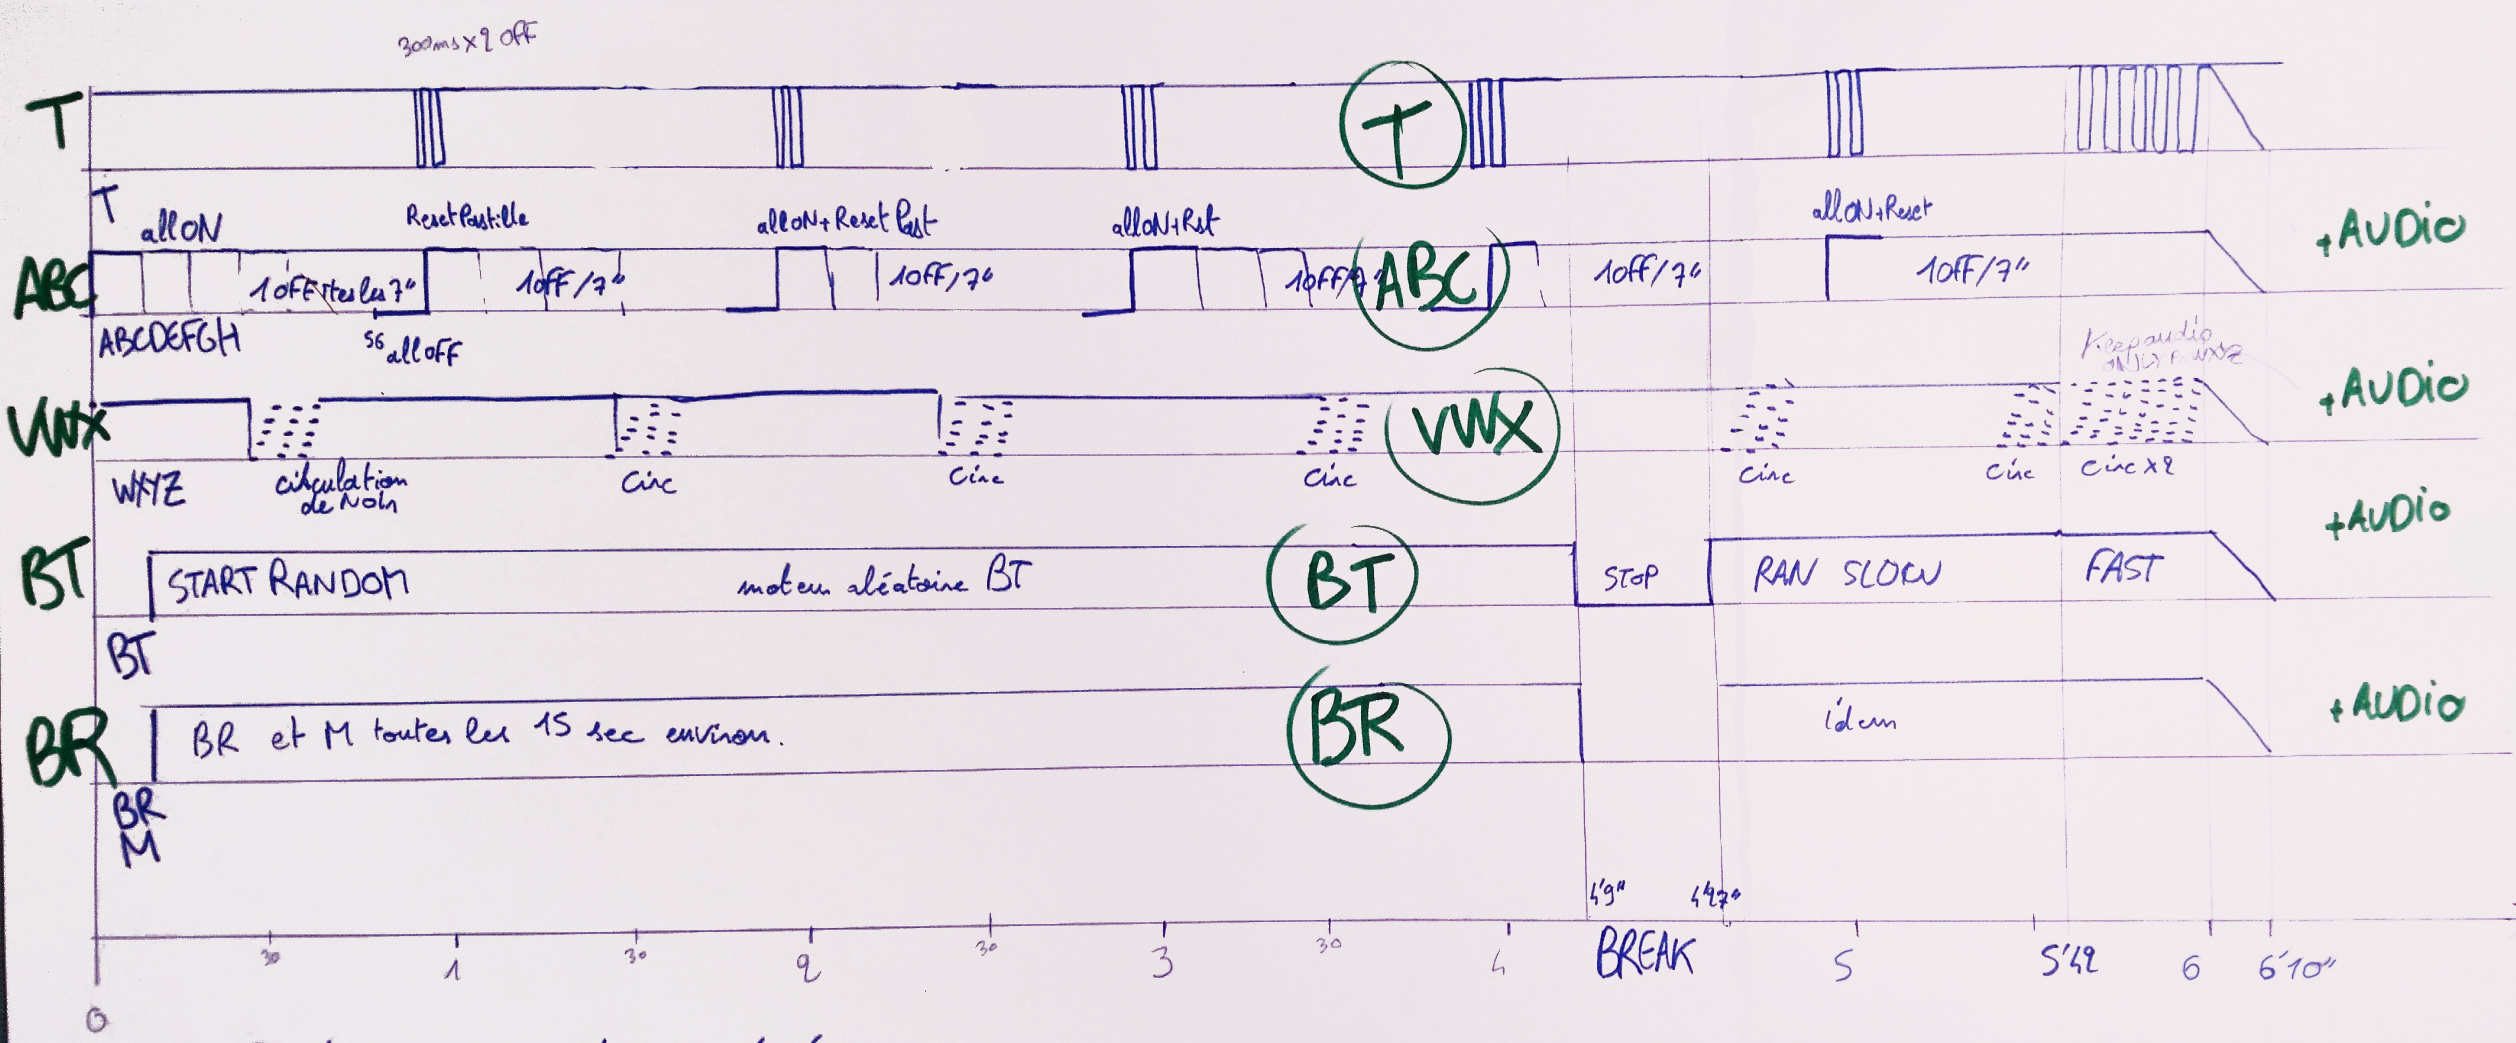 300ms x 2 OFF
T
T
T
allON
ResetPastille
allON+Reset Past
allON+Rst
allON+Reset
+AUDiO
ABC
1OFF ttes les 7"
1OFF/7"
1OFF/7"
1OFF/7"
ABC
1OFF/7"
1OFF/7"
ABCDEFGH
56 all OFF
Keep audio
+AUDiO
VWX
VWX
WXYZ
circulation
de Noir
Circ
Circ
Circ
Circ
Circ
Circ x2
+AUDiO
BT
START RANDOM
moteur aléatoire BT
BT
STOP
RAN SLOW
FAST
BT
BR
BR et M toutes les 15 sec environ.
BR
idem
+AUDiO
BR
M
4'9"
4'27"
30
1
30
2
30
3
30
4
BREAK
5
5'42
6
6'10"
0